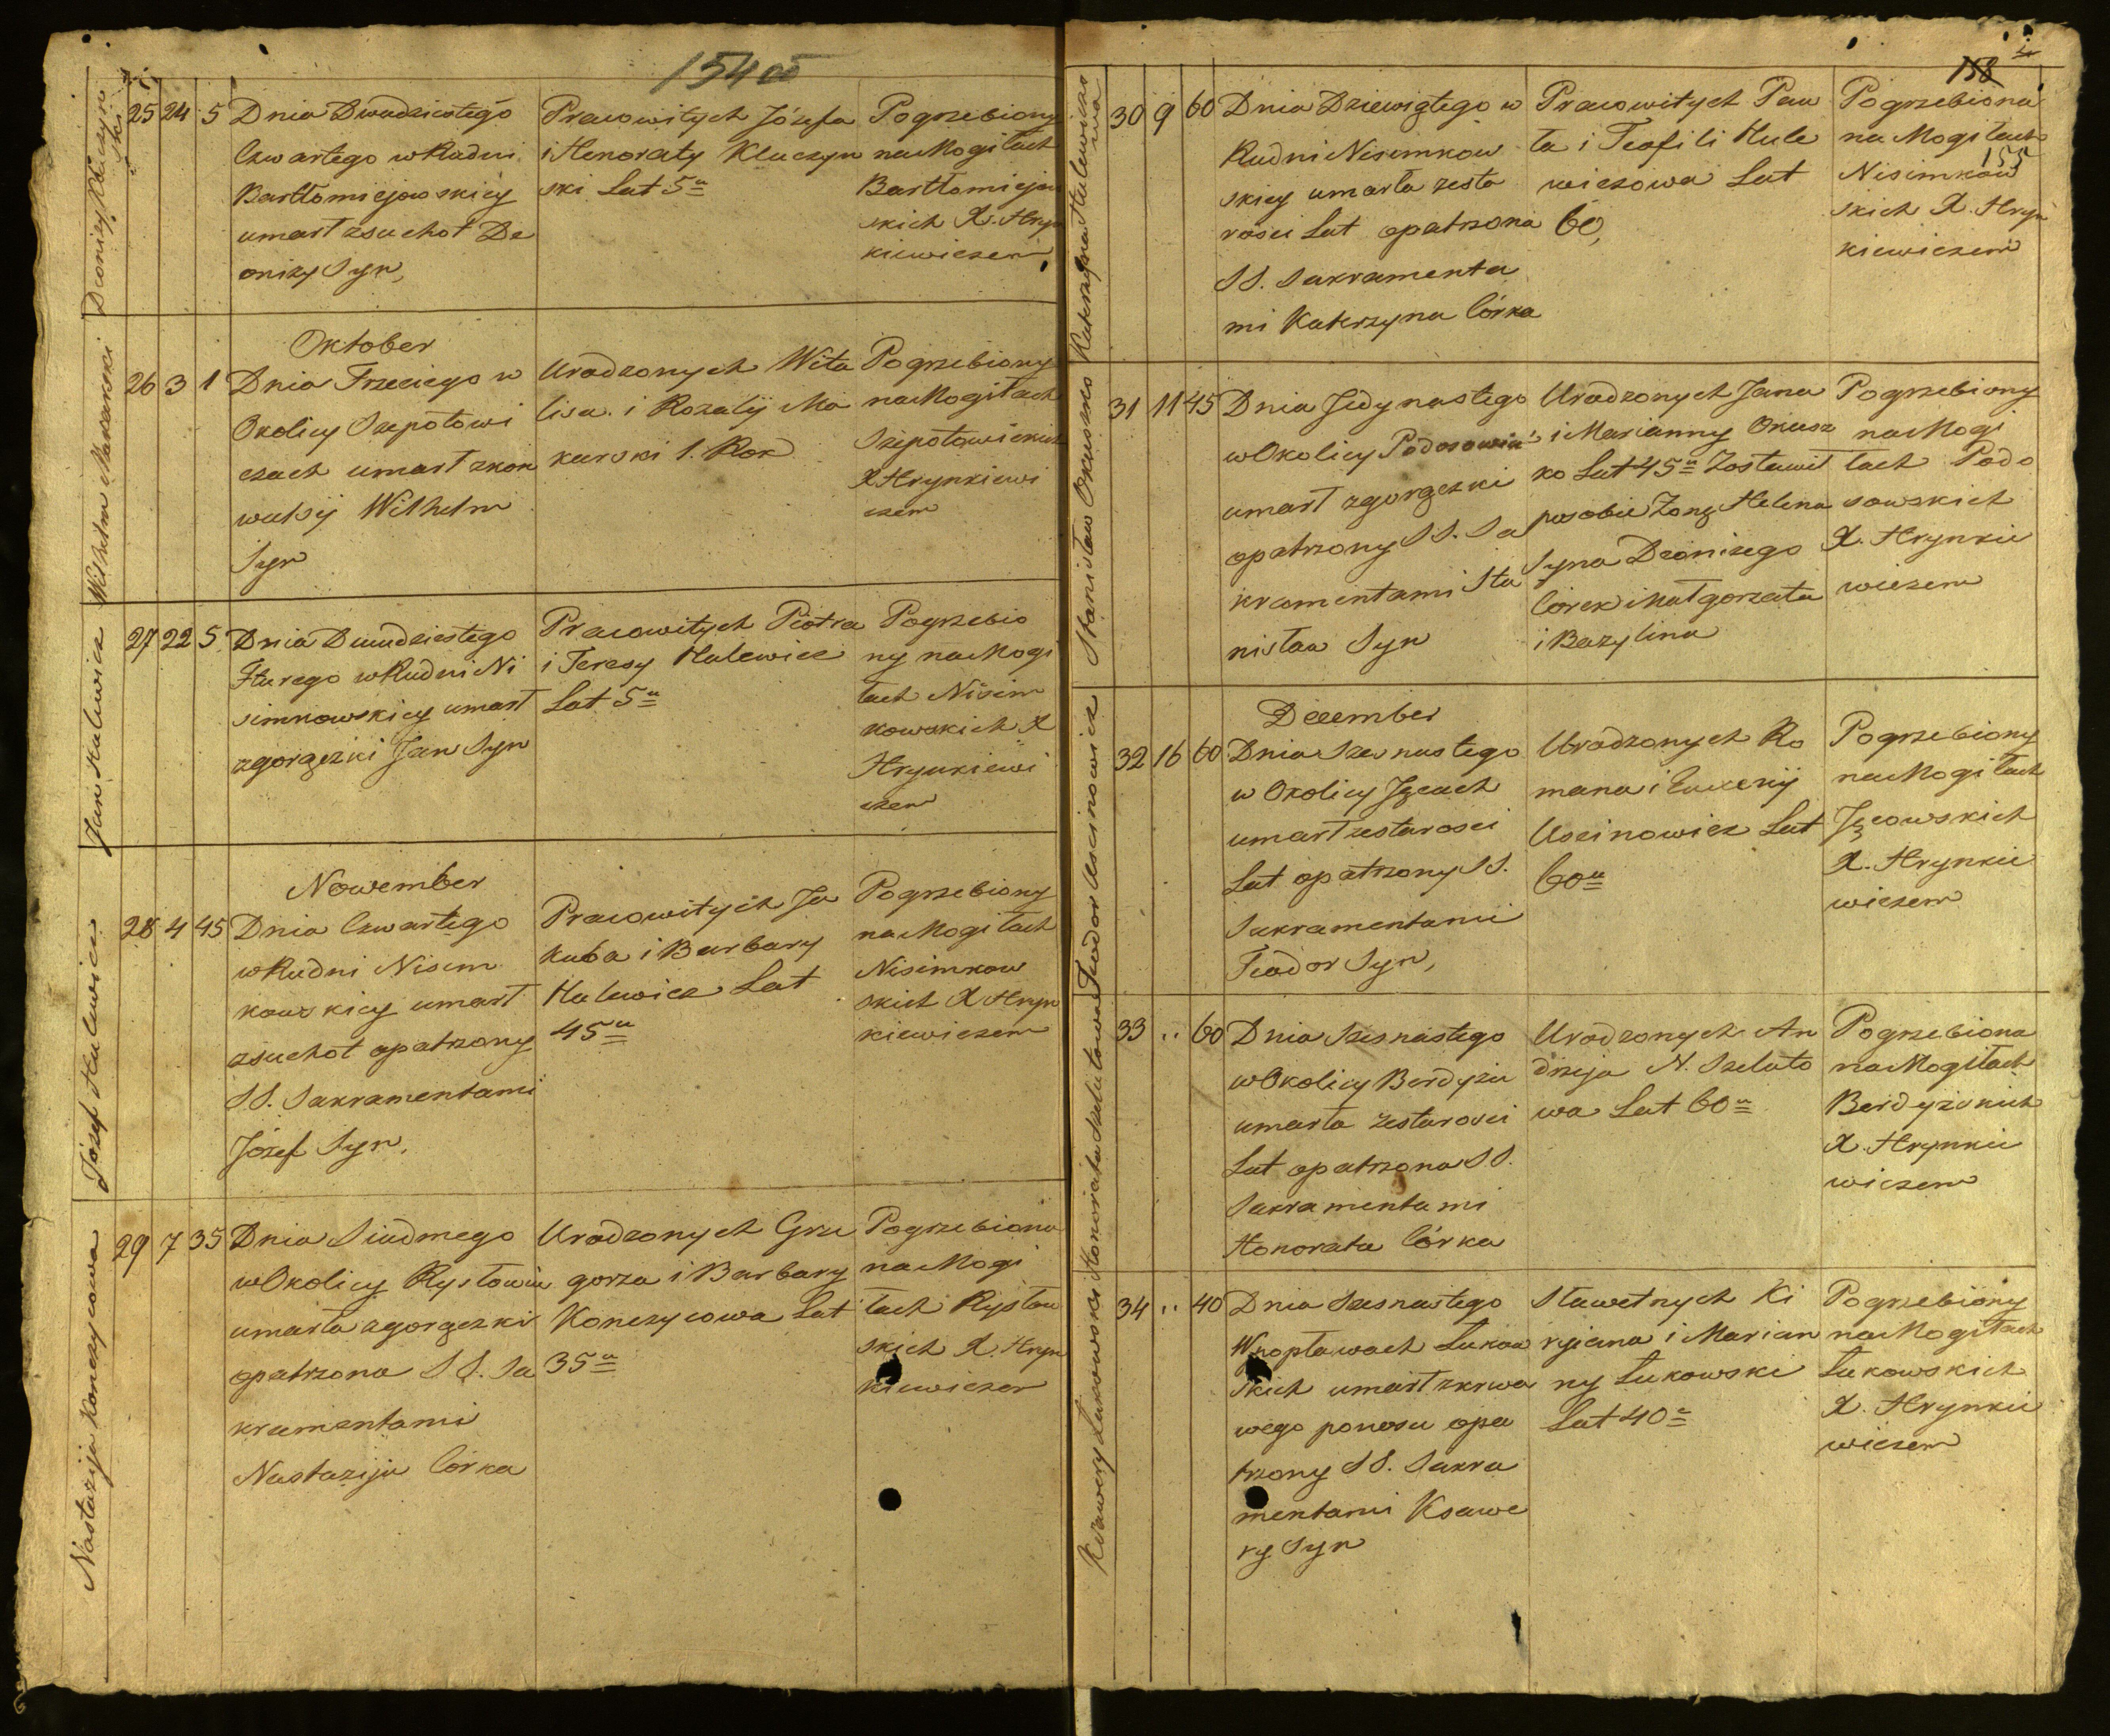 154 об
Deonizy Kluczyn
ski
25 24 5 Dnia Dwudziestego
Czwartego w Rudni
Bartłomiejowskiey
umarł zsuchot De
onizy Syn,
Pracowitych Józefa
i Honoraty Kluczyn
ski Lat 5"
Pogrzebiony
na Mogiłach
Bartłomiejow
skich X. Hryn
kiewiczem
Wilhelm Makarski
Oktober
26 3 1 Dnia Trzeciego w
Okolicy Szepotowi
czach umarł zkon
wulsij Wilhelm
Syn
Urodzonych Wita
lisa i Rozalij Ma
karski 1. Rok
Pogrzebiony
na Mogiłach
Szepotowickich
X Hrynkiewi
czem
Jan Halewicz
27 22 5 Dnia Dwudziestego
Wturego w Rudni Ni
simkowskiey umarł
zgorączki Jan Syn
Pracowitych Piotra
i Teresy Halewicz
Lat 5"
Pogrzebio
ny na Mogi
łach Nisim
kowskich X
Hrynkiewi
czem
Józef Halewicz
Nowember
28 4 45 Dnia Czwartego
w Rudni Nisim
kowskiey umarł
zsuchot opatrzony
SS. Sakramentami
Józef Syn,
Pracowitych Ja
kuba i Barbary
Halewicz Lat
45"
Pogrzebiony
na Mogiłach
Nisimkow
skich X Hryn
kiewiczem
Nastazija Konczycowa
29 7 35 Dnia Siudmego
w Okolicy Rysłowiu
umarła zgorączki
opatrzona SS. Sa
kramentami
Nastazija Córka
Urodzonych Grze
gorza i Barbary
Konczycowa Lat
35"
Pogrzebiona
na Mogi
łach Rysłow
skich X. Hryn
kiewiczem
158
155
Katerzyna Halewiczo
wa
30 9 60 Dnia Dziewiątego w
Rudni Nisimkow
skiey umarła zesta
rosci Lat opatrzona
SS. Sakramenta
mi Katerzyna Córka
Pracowitych Paw
ła i Teofili Hale
wiczowa Lat
60,
Pogrzebiona
na Mogiłach
Nisimkow
skich X. Hryn
kiewiczem
Stanisław Okuszko
31 11 45 Dnia Jedynastego
w Okolicy Podosowiu
umarł zgorączki
opatrzony SS. Sa
kramentami Sta
nisław Syn
Urodzonych Jana
i Marianny Okusz
ko Lat 45" Zostawił
posobie Zonę Helena
Syna Deonizego
Córek Małgorzata
i Bazylina
Pogrzebiony
na Mogi
łach Podo
sowskich
X. Hrynkie
wiczem
Teodor Uscinowicz
December
32 16 60 Dnia Szesnastego
w Okolicy Jęcach
umarł zestarosci
Lat opatrzony SS.
Sakramentami
Teodor Syn,
Urodzonych Ro
mana i
Uscinowicz Lat
60"
Pogrzebiony
na Mogiłach
Jęcowskich
X. Hrynkie
wiczem
Honorata Szelutowa
33 " 60 Dnia Szesnastego
w Okolicy Berdyżu
umarła zestarosci
Lat opatrzona SS.
Sakramentami
Honorata Córka
Urodzonych An
drzeja N. Szeluto
wa Lat 60"
Pogrzebiona
na Mogiłach
Berdyżskich
X. Hrynkie
wiczem
Ksawery Łukowski
34 " 40 Dnia Szesnastego
W popławach Łukow
skich umarł zkrwa
wego ponosu opa
trzony SS. Sakra
mentami Ksawe
ry Syn
Sławetnych Ki
ryjana i Marian
ny Łukowski
Lat 40"
Pogrzebiony
na Mogiłach
Łukowskich
X. Hrynkie
wiczem